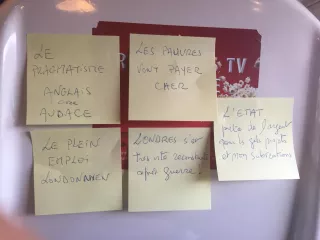 LE
PRAGMATISME
ANGLAIS
AUDACE
LES PAUVRES
VONT PAYER
CHER
TV
LE PLEIN
EMPLOI
LONDONNIEN
LONDRES s'est
très vite reconstruite
après guerre !
L'ETAT
prête de l'argent
pour les gds projets
et non subventions